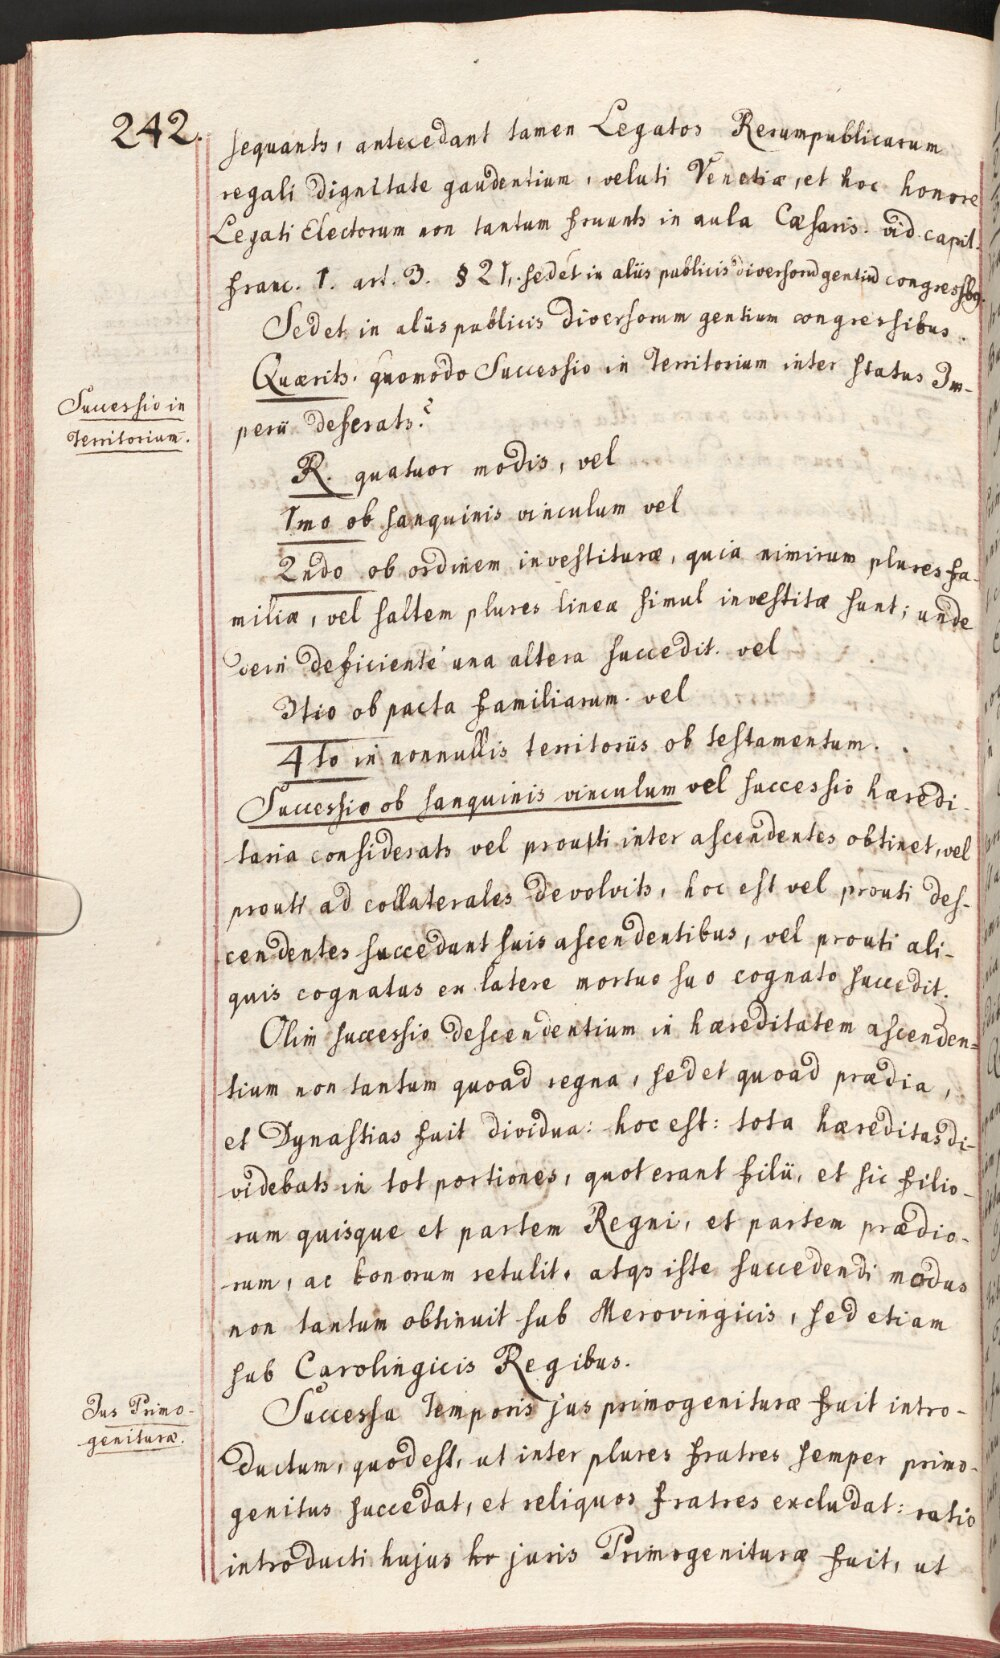 242.
sequants, antecedant tamen Legatos Rerumpublicarum
regali dignitate gaudentium, veluti Venetiæ, et hoc honore
Legati Electorum non tantum fruunts in aula Cæsaris. vid. capit.
franc. 1. art. 3. § 21, sed et in aliis publicis diversorum gentium congressibq.
Sed et in aliis publicis diversorum gentium congressibus.
Quærits. quomodo Successio in Territorium inter status Im-
Successio in
Territorium.
perii deferats?
R. quatuor modis, vel
1mo ob sanquinis vinculum vel
2ndo ob ordinem investituræ, quia nimirum plures fa-
miliæ, vel saltem plures lineæ simul investitæ sunt; unde
deficiente una altera succedit. vel
3tio ob pacta familiarum. vel
4to in nonnullis territoriis ob testamentum.
Successio ob sanquinis vinculum vel successio hæredi-
taria considerats vel prouti inter ascendentes obtinet, vel
prouti ad collaterales devolvits, hoc est vel prouti des-
cendentes succedunt suis ascendentibus, vel prouti ali-
quis cognatus ex latere mortuo suo cognato succedit.
Olim successio descendentium in hæreditatem ascenden=
tium non tantum quoad regna, sed et quoad prædia,
et Dynastias fuit dividua: hoc est: tota hæreditas di-
videbats in tot portiones, quot erant filii, et sic filio-
rum quisque et partem Regni, et partem prædio-
rum, ac bonorum retulit. atqs iste succedendi modus
non tantum obtinuit sub Merovingicis, sed etiam
sub Carolingicis Regibus.
Jus Primo-
genituræ.
Successu Temporis jus primogenituræ fuit intro-
ductum, quod est, ut inter plures fratres semper primo-
genitus succedat, et reliquos fratres excludat: ratio
introducti hujus juris Primogenituræ fuit, ut